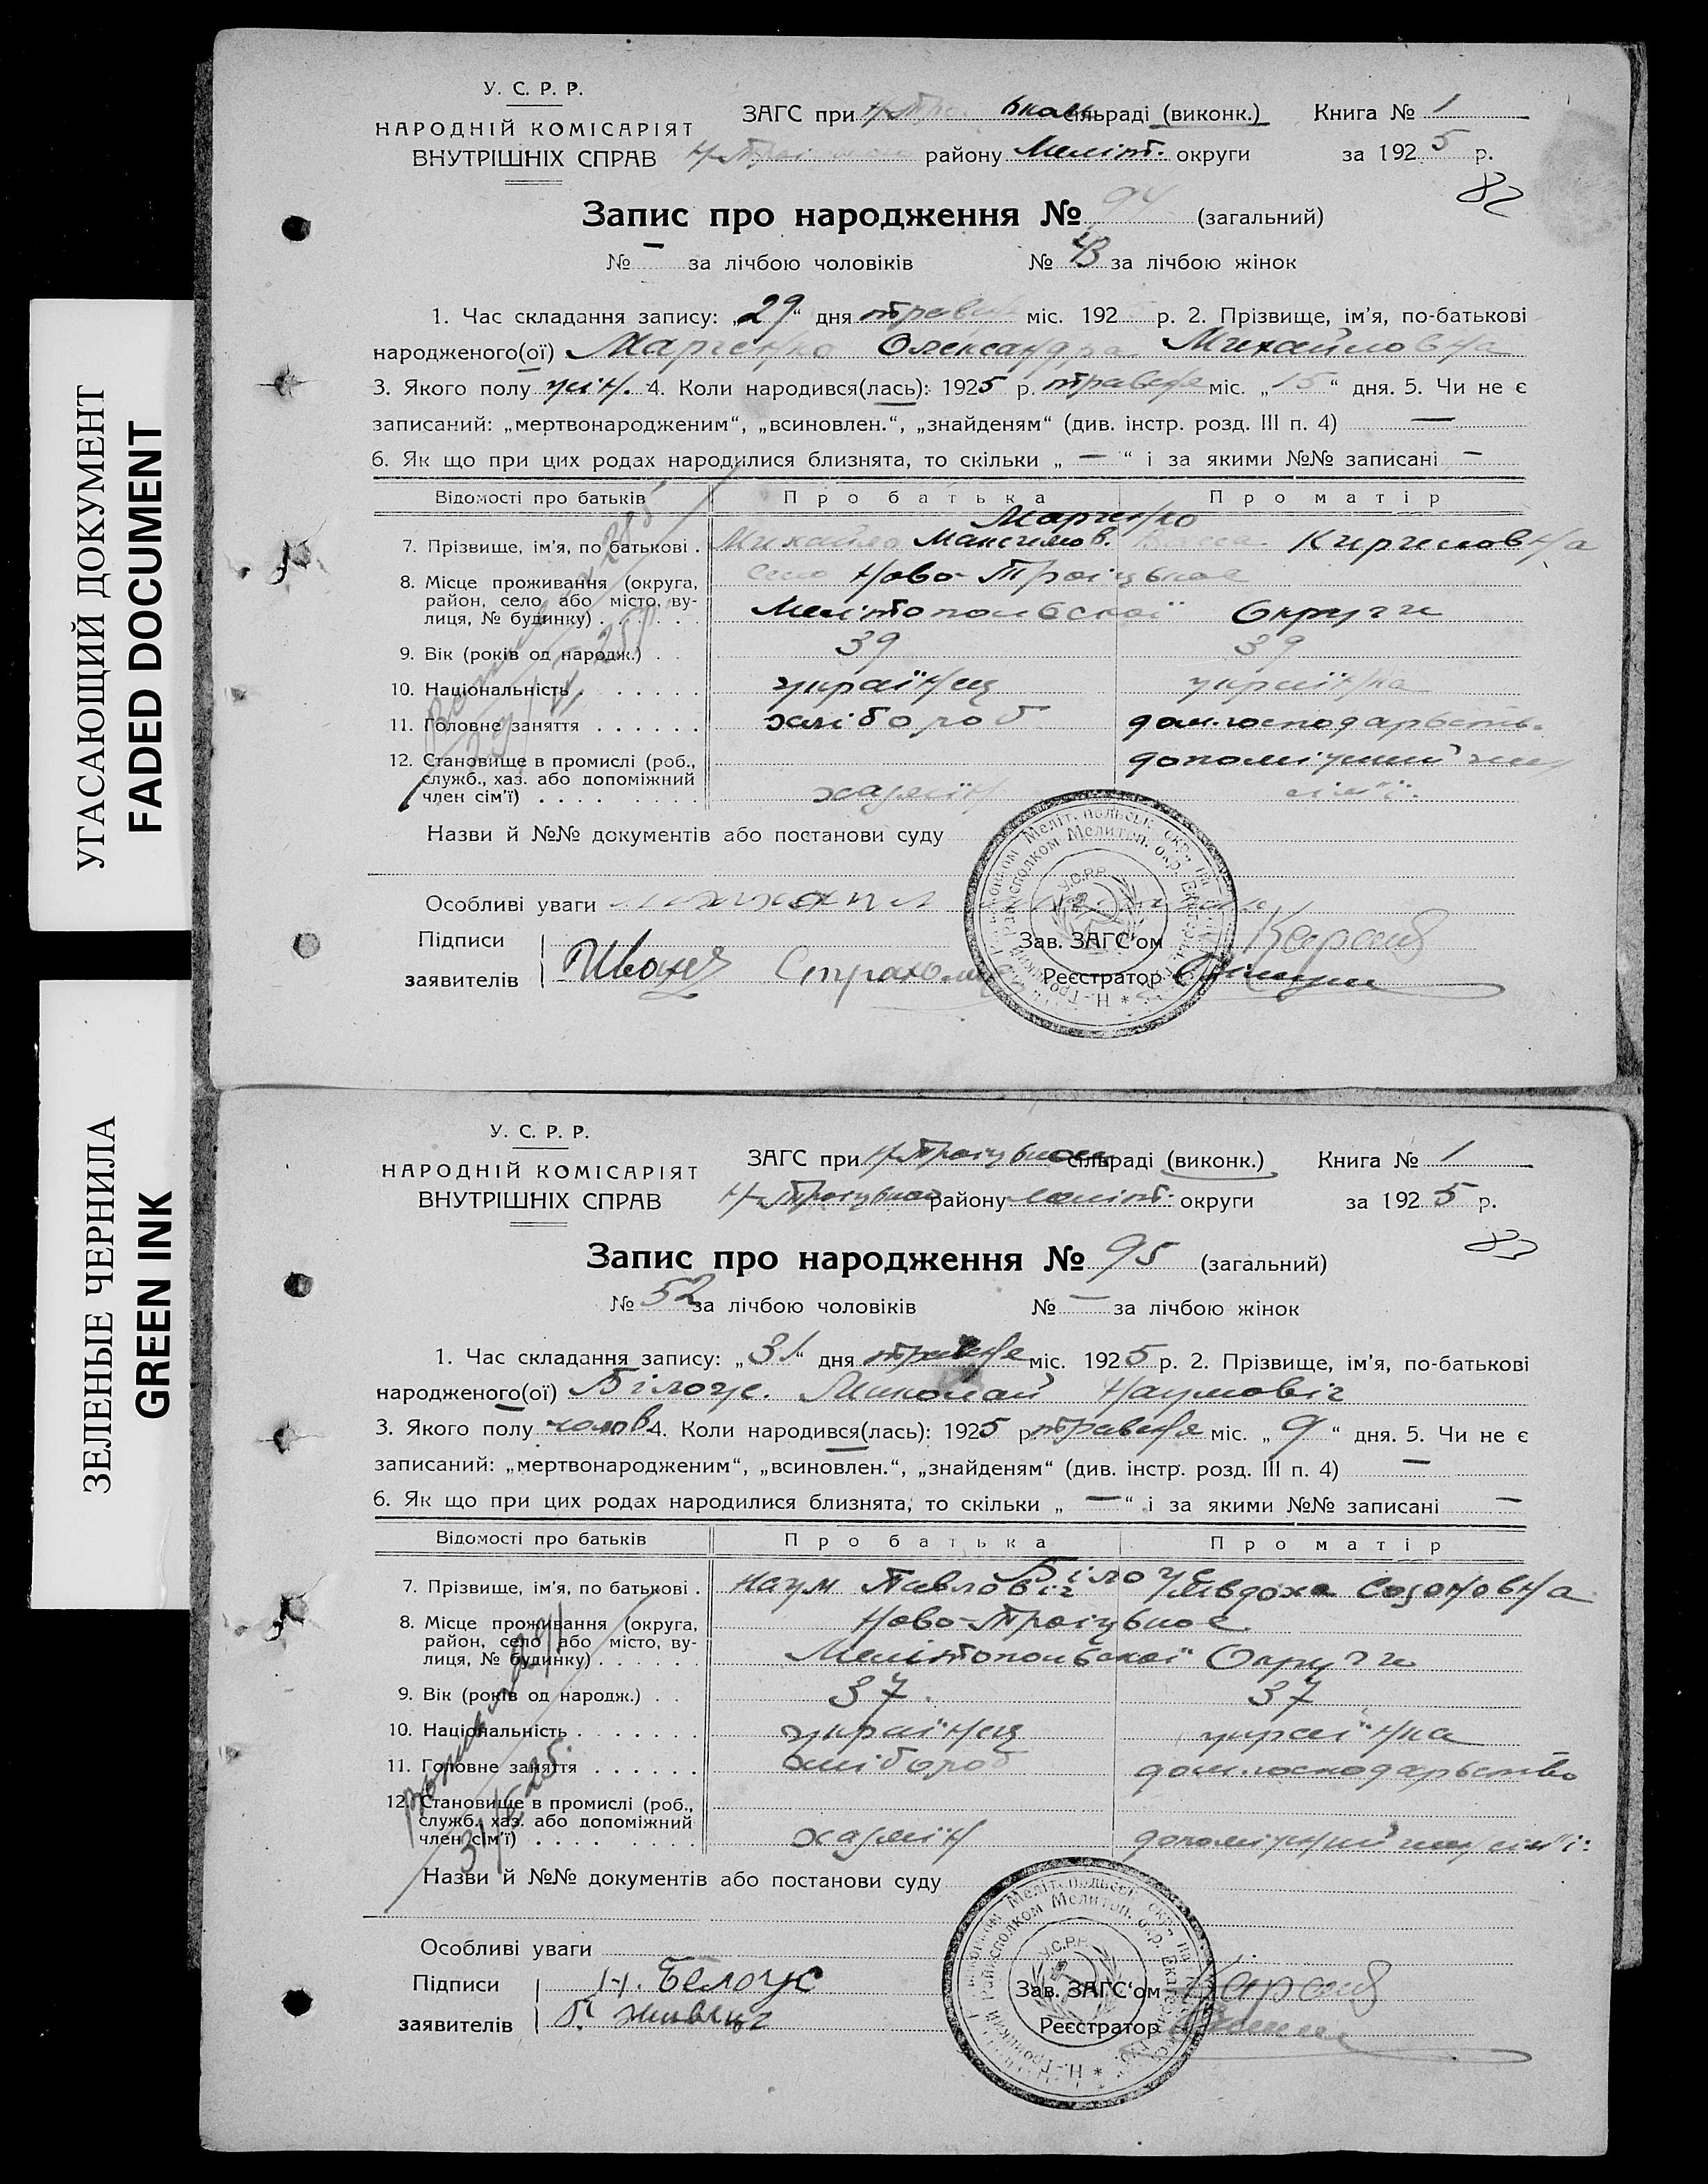 УГАСАЮЩИЙ ДОКУМЕНТ
FADED DOCUMENT
ЗЕЛЕНЫЕ ЧЕРНИЛА
GREEN INK
У. С. Р. Р.
НАРОДНІЙ КОМІСАРІЯТ
ВНУТРІШНІХ СПРАВ
ЗАГС при сільраді (виконк.) Книга № 1
району Меліт. округи за 1925 р.
82
Запис про народження № 94 (загальний)
№ — за лічбою чоловіків № 43 за лічбою жінок
1. Час складання запису: „29“ дня травня міс. 192 р. 2. Прізвище, ім'я, по-батькові
народженого(ої) Марченко Олександра Михайловна
3. Якого полу жін. 4. Коли народився(лась): 1925 р. травня міс. „15“ дня. 5. Чи не є
записаний: „мертвонародженим“, „всиновлен.“, „знайденям“ (див. інстр. розд. III п. 4) —
6. Як що при цих родах народилися близнята, то скільки „—“ і за якими №№ записані —
Відомості про батьків Про батька Про матір
Марченко
7. Прізвище, ім'я, по батькові . Михайло Максимов. Кириловна
8. Місце проживання (округа, село Ново-Троіцькое
район, село або місто, ву-
лиця, № будинку) . . . . . . Мелітопольскої Округи
9. Вік (років од народж.) . . 39 39
10. Національність . . . . . . . українец українка
11. Головне заняття . . . . . . хлібороб дом. господарств.
12. Становище в промислі (роб., допоміжний член
служб., хаз. або допоміжний
член сім'ї) . . . . . . . . . хазяїн сім'ї.
Назви й №№ документів або постанови суду
Особливі уваги
Підписи
заявителів
Зав. ЗАГС'ом
Реєстратор
У.С.Р.Р.
У. С. Р. Р.
НАРОДНІЙ КОМІСАРІЯТ
ВНУТРІШНІХ СПРАВ
ЗАГС при Н-Троіцьком сільраді (виконк.) Книга № 1
Н-Троіцькой району Меліт. округи за 1925 р.
83
Запис про народження № 95 (загальний)
№ 52 за лічбою чоловіків № — за лічбою жінок
1. Час складання запису: „31“ дня травня міс. 1925 р. 2. Прізвище, ім'я, по-батькові
народженого(ої) Білоус Миколай Наумовіч
3. Якого полу чолов. 4. Коли народився(лась): 1925 р. травня міс. „9“ дня. 5. Чи не є
записаний: „мертвонародженим“, „всиновлен.“, „знайденям“ (див. інстр. розд. III п. 4) —
6. Як що при цих родах народилися близнята, то скільки „—“ і за якими №№ записані —
Відомості про батьків Про батька Про матір
Білоус
7. Прізвище, ім'я, по батькові . Наум Павловіч Явдоха Созоновна
8. Місце проживання (округа, Ново-Троіцькое
район, село або місто, ву-
лиця, № будинку) . . . . . . Мелітопольскої Округи
9. Вік (років од народж.) . . 37. 37
10. Національність . . . . . . . українец українка
11. Головне заняття . . . . . . хлібороб дом. господарьство
12. Становище в промислі (роб.,
служб., хаз. або допоміжний
член сім'ї) . . . . . . . . . хазяїн допоміжний член сім'ї.
Назви й №№ документів або постанови суду
Особливі уваги
Підписи Н. Белоус
заявителів
Зав. ЗАГС'ом
Реєстратор
У.С.Р.Р.